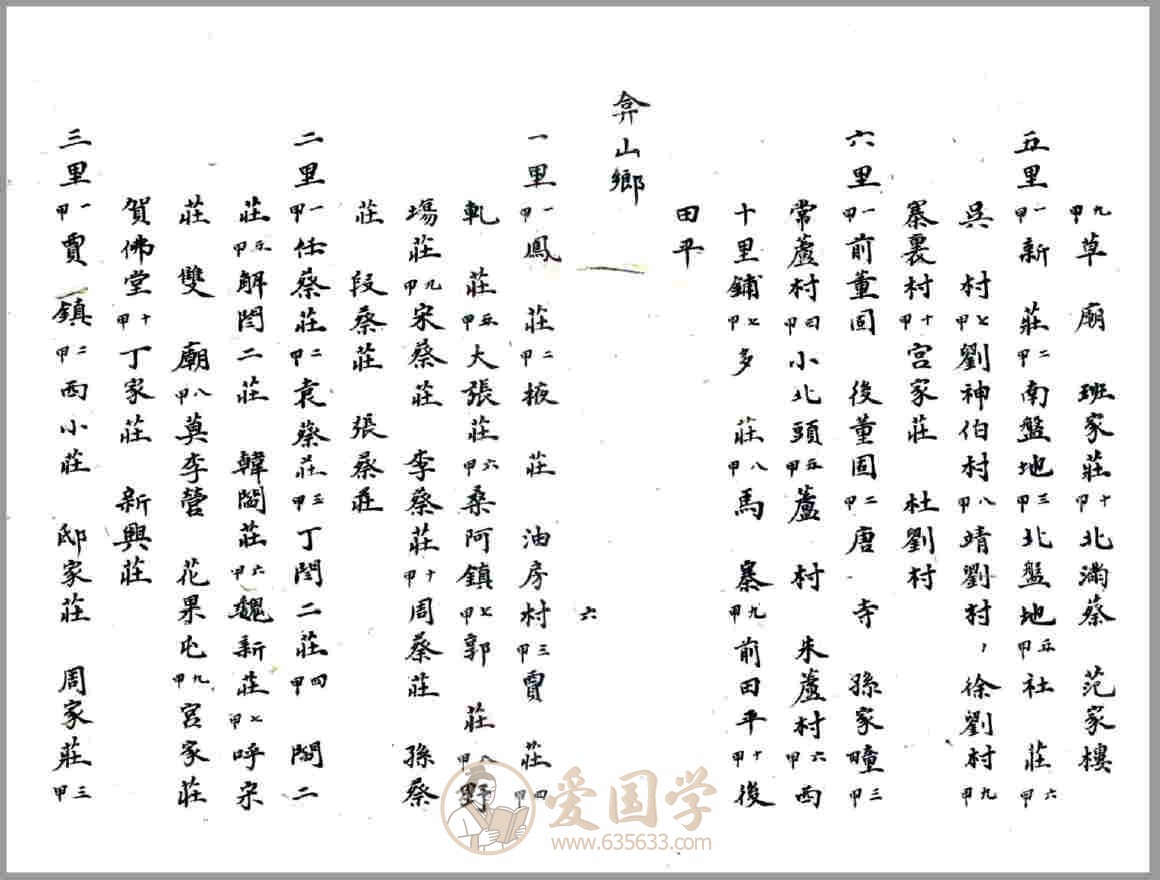 九甲草廟 班家莊十甲北滿蔡 范家樓
五里一甲新莊二甲南盤地三甲北盤地五甲社莊六甲
吳村七甲劉神伯村八甲靖劉村，徐劉村九甲
寨裏村十甲宮家莊 杜劉村
六里一甲前董固 後董固二甲唐寺 孫家疃三甲
常蘆村四甲小北頭五甲蘆村 朱蘆村六甲西
十里鋪七甲多莊八甲馬寨九甲前田平十甲後
田平
弇山鄉
六
一里一甲鳳莊二甲掖莊 油房村三甲賈莊四甲
軋莊五甲大張莊六甲桑阿鎮七甲郭莊八甲野
塲莊九甲宋蔡莊 李蔡莊十甲周蔡莊 孫蔡
莊 段蔡莊 張蔡莊
二里一甲任蔡莊二甲袁蔡莊三甲丁閆二莊四甲 閻二
莊五甲解閆二莊 韓閻莊六甲魏新莊七甲呼宋
莊 雙廟八甲莫李營 花果屯九甲宮家莊
賀佛堂十甲丁家莊 新興莊
三里一甲賈鎮二甲西小莊 邸家莊 周家莊三甲
爱国学
www.635633.com